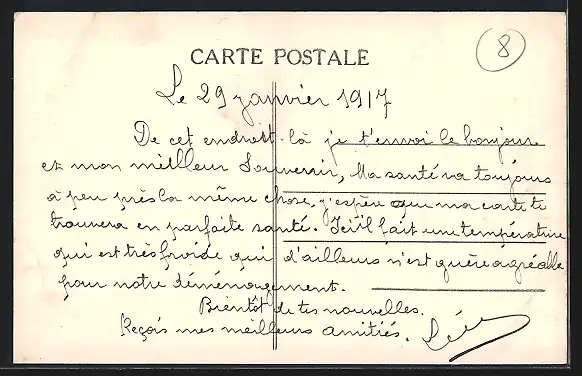 8
CARTE POSTALE
Le 29 janvier 1917
De cet endroit-là je t'envoi le bonjour
et mon meilleur Souvenir, Ma santé va toujours
à peu près la même chose, j'espère que ma carte te
trouvera en parfaite santé. Ici il fait une température
qui est très froide qui d'ailleurs n'est guère agréable
pour notre déménagement.
Bientôt de tes nouvelles.
Reçois mes meilleurs amitiés.